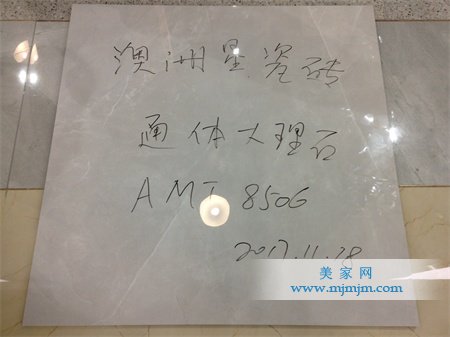 澳洲星瓷砖
通体大理石
AMT 8506
2017.11.28
美家网
www.mjmjm.com